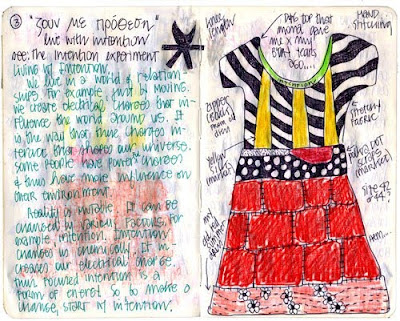 ③ "ζουν με πρόθεση"
live with intention
see: The Intention experiment
living by intention.
We live in a world of relation-
ships, for example just by moving.
We create electrical charges that in-
fluence the world around us. It
is the way that these charges in-
terface that shapes our universe.
Some people have charges
& thus have more influence on
their environment.
Reality is mutable. It can be
changed by various factors, for
example intention. Intention
changes us chemically. It in-
creases our electrical charge.
Thus focused intention is a
form of energy. So to make a
change, start by intention.
knee
length
this top that
moma gave
me x my
B'day tears
ago...
HAND
STITCHING
zipper
stretchy
fabric
yellow
stripes
(marimekko)
polka dot
stripes
size 42
or 44?
hem...
my